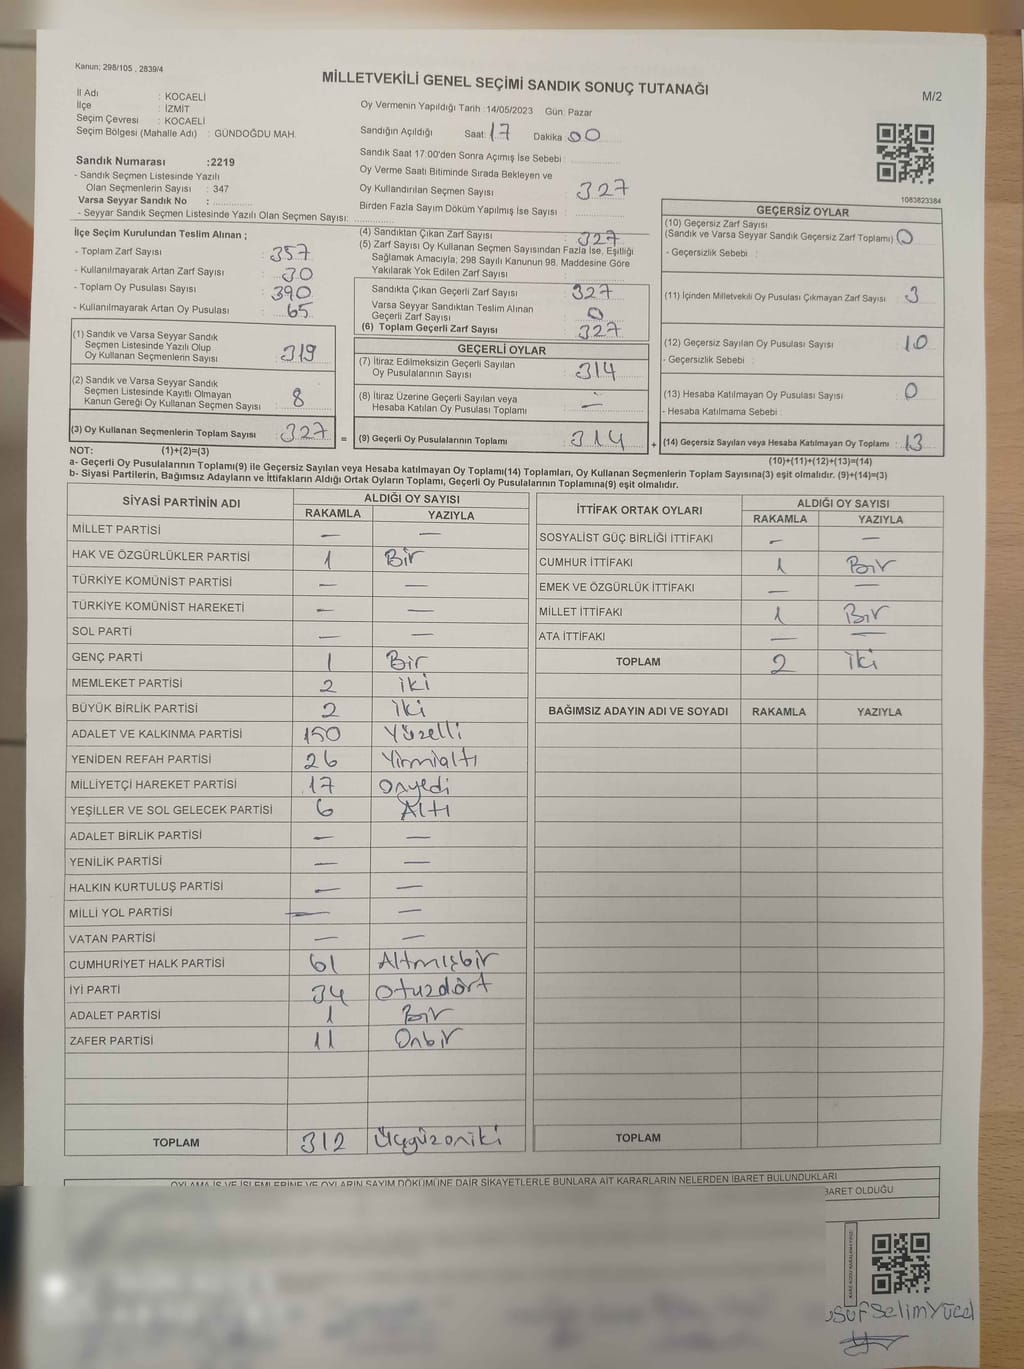 Kanun; 298/105 , 2839/4
MİLLETVEKİLİ GENEL SEÇİMİ SANDIK SONUÇ TUTANAĞI
M/2
İl Adı : KOCAELİ
İlçe : İZMİT
Seçim Çevresi : KOCAELİ
Seçim Bölgesi (Mahalle Adı) : GÜNDOĞDU MAH.
Oy Vermenin Yapıldığı Tarih :14/05/2023 Gün: Pazar
Sandığın Açıldığı Saat: 17 Dakika 00
Sandık Saat 17.00'den Sonra Açımış İse Sebebi :
Oy Verme Saati Bitiminde Sırada Bekleyen ve
Oy Kullandırılan Seçmen Sayısı : 327
Birden Fazla Sayım Döküm Yapılmış İse Sayısı :
Sandık Numarası :2219
- Sandık Seçmen Listesinde Yazılı
Olan Seçmenlerin Sayısı : 347
Varsa Seyyar Sandık No :
- Seyyar Sandık Seçmen Listesinde Yazılı Olan Seçmen Sayısı:
1083823384
İlçe Seçim Kurulundan Teslim Alınan ;
- Toplam Zarf Sayısı : 357
- Kullanılmayarak Artan Zarf Sayısı : 30
- Toplam Oy Pusulası Sayısı : 390
- Kullanılmayarak Artan Oy Pusulası : 65
(1) Sandık ve Varsa Seyyar Sandık
Seçmen Listesinde Yazılı Olup
Oy Kullanan Seçmenlerin Sayısı : 319
(2) Sandık ve Varsa Seyyar Sandık
Seçmen Listesinde Kayıtlı Olmayan
Kanun Gereği Oy Kullanan Seçmen Sayısı : 8
(3) Oy Kullanan Seçmenlerin Toplam Sayısı : 327
(4) Sandıktan Çıkan Zarf Sayısı : 327
(5) Zarf Sayısı Oy Kullanan Seçmen Sayısından Fazla İse, Eşitliği
Sağlamak Amacıyla; 298 Sayılı Kanunun 98. Maddesine Göre
Yakılarak Yok Edilen Zarf Sayısı :
Sandıkta Çıkan Geçerli Zarf Sayısı : 327
Varsa Seyyar Sandıktan Teslim Alınan
Geçerli Zarf Sayısı : 0
(6) Toplam Geçerli Zarf Sayısı : 327
GEÇERLİ OYLAR
(7) İtiraz Edilmeksizin Geçerli Sayılan
Oy Pusulalarının Sayısı : 314
(8) İtiraz Üzerine Geçerli Sayılan veya
Hesaba Katılan Oy Pusulası Toplamı : —
= (9) Geçerli Oy Pusulalarının Toplamı : 314
GEÇERSİZ OYLAR
(10) Geçersiz Zarf Sayısı
(Sandık ve Varsa Seyyar Sandık Geçersiz Zarf Toplamı) 0
- Geçersizlik Sebebi :
(11) İçinden Milletvekili Oy Pusulası Çıkmayan Zarf Sayısı : 3
(12) Geçersiz Sayılan Oy Pusulası Sayısı : 10
- Geçersizlik Sebebi :
(13) Hesaba Katılmayan Oy Pusulası Sayısı : 0
- Hesaba Katılmama Sebebi :
+ (14) Geçersiz Sayılan veya Hesaba Katılmayan Oy Toplamı : 13
NOT: (1)+(2)=(3)
(10)+(11)+(12)+(13)=(14)
a- Geçerli Oy Pusulalarının Toplamı(9) ile Geçersiz Sayılan veya Hesaba katılmayan Oy Toplamı(14) Toplamları, Oy Kullanan Seçmenlerin Toplam Sayısına(3) eşit olmalıdır. (9)+(14)=(3)
b- Siyasi Partilerin, Bağımsız Adayların ve İttifakların Aldığı Ortak Oyların Toplamı, Geçerli Oy Pusulalarının Toplamına(9) eşit olmalıdır.
SİYASİ PARTİNİN ADI ALDIĞI OY SAYISI
RAKAMLA YAZIYLA
MİLLET PARTİSİ — —
HAK VE ÖZGÜRLÜKLER PARTİSİ 1 Bir
TÜRKİYE KOMÜNİST PARTİSİ — —
TÜRKİYE KOMÜNİST HAREKETİ — —
SOL PARTİ — —
GENÇ PARTİ 1 Bir
MEMLEKET PARTİSİ 2 iki
BÜYÜK BİRLİK PARTİSİ 2 iki
ADALET VE KALKINMA PARTİSİ 150 Yüzelli
YENİDEN REFAH PARTİSİ 26 Yirmialtı
MİLLİYETÇİ HAREKET PARTİSİ 17 Onyedi
YEŞİLLER VE SOL GELECEK PARTİSİ 6 Altı
ADALET BİRLİK PARTİSİ — —
YENİLİK PARTİSİ — —
HALKIN KURTULUŞ PARTİSİ — —
MİLLİ YOL PARTİSİ — —
VATAN PARTİSİ — —
CUMHURİYET HALK PARTİSİ 61 Altmışbir
İYİ PARTİ 34 Otuzdört
ADALET PARTİSİ 1 Bir
ZAFER PARTİSİ 11 Onbir
TOPLAM 312 Üçyüzoniki
İTTİFAK ORTAK OYLARI ALDIĞI OY SAYISI
RAKAMLA YAZIYLA
SOSYALİST GÜÇ BİRLİĞİ İTTİFAKI — —
CUMHUR İTTİFAKI 1 Bir
EMEK VE ÖZGÜRLÜK İTTİFAKI — —
MİLLET İTTİFAKI 1 Bir
ATA İTTİFAKI — —
TOPLAM 2 iki
BAĞIMSIZ ADAYIN ADI VE SOYADI RAKAMLA YAZIYLA
TOPLAM
OYLAMA İŞ VE İŞLEMLERİNE VE OYLARIN SAYIM DÖKÜMÜNE DAİR ŞİKAYETLERLE BUNLARA AİT KARARLARIN NELERDEN İBARET BULUNDUKLARI
BARET OLDUĞU
usuf Selim Yücel